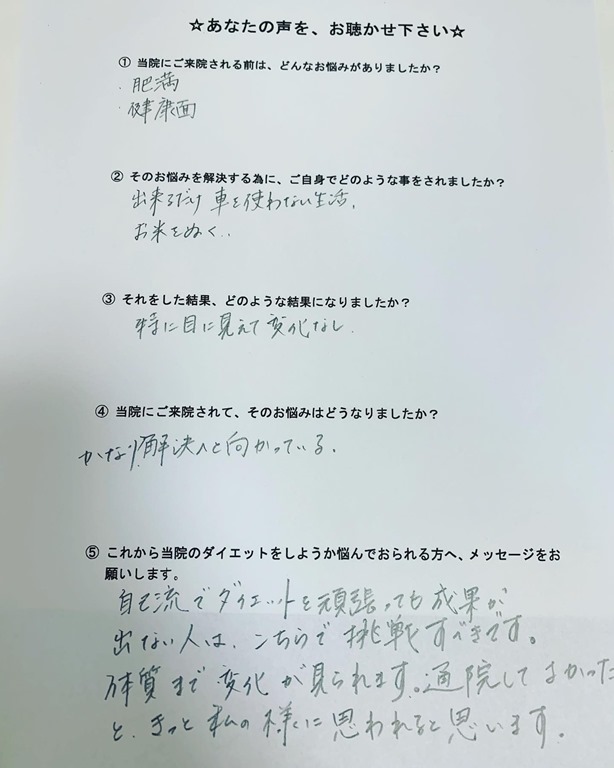 ☆あなたの声を、お聴かせ下さい☆
① 当院にご来院される前は、どんなお悩みがありましたか？
・肥満
・健康面
② そのお悩みを解決する為に、ご自身でどのような事をされましたか？
出来るだけ車を使わない生活。
お米をぬく..
③ それをした結果、どのような結果になりましたか？
特に目に見えて変化なし.
④ 当院にご来院されて、そのお悩みはどうなりましたか？
かなり解決へと向かっている.
⑤ これから当院のダイエットをしようか悩んでおられる方へ、メッセージをお
願いします。
自己流でダイエットを頑張っても成果が
出ない人は、こちらで挑戦すべきです。
体質まで変化が見られます。通院してよかった
と、きっと私の様に思われると思います。